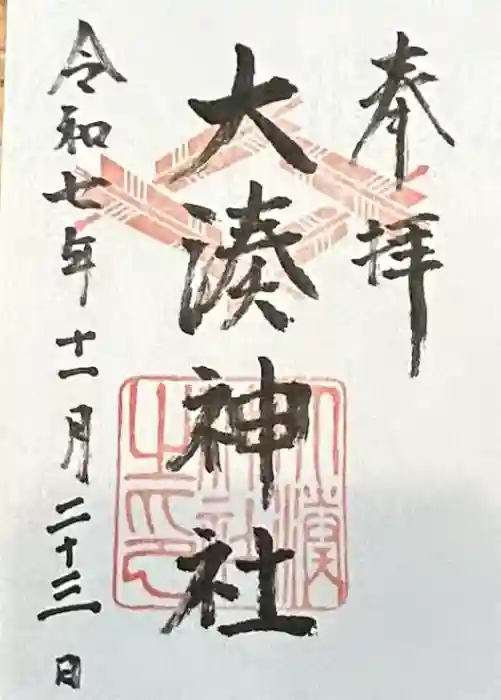 奉拝
大湊神社
令和七年十一月二十三日